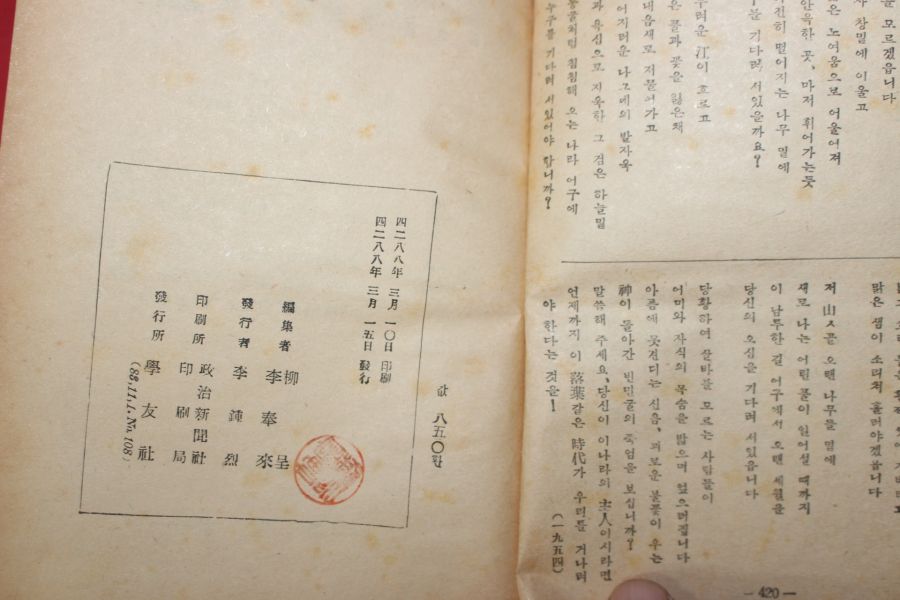 을 모르겠읍니다
창밑에 이울고
은 노여움으로 어울어져
안윽한 곳, 마저 휘어가는듯
전히 떨어지는 나무 밑에
를 기다려 서있을까요?
우러운 江이 흐르고
은 풀과 꽃을 잃은채
내음새로 저물어가고
어지러운 나그네의 발자욱
과 욕심으로 지욱한 그 검은 하늘밑
동굴처럼 침침해 오는 나라 어구에
누구를 기다려 서있어야 합니까?
맑은 샘이 소리쳐 흘러야겠읍니다
저 山ㅅ골 오랜 나무들 옆에
새로 나는 어린 풀이 일어설 때까지
이 남루한 길 어구에서 오랜 세월을
당신의 오심을 기다려 서있읍니다
당황하여 살바를 모르는 사람들이
어미와 자식의 목숨을 밟으며 엎으러집니다
아픔에 못견디는 신음, 괴로운 불꽃이 우는
神이 돌아간 빈밀굴의 죽엄을 보십니까?
말씀해 주세요, 당신이 이나라의 主人이시라면
언제까지 이 落葉같은 時代가 우리를 거나려
야 한다는 것을!
(一九五四)
— 420 —
값 八五〇환
四二八八年 三月 一〇日 印刷
四二八八年 三月 一五日 發行
編集者 柳呈
李奉來
發行者 李鍾烈
印刷所 政治新聞社
印刷局
發行所 學友社
(88.11.1. No. 108)